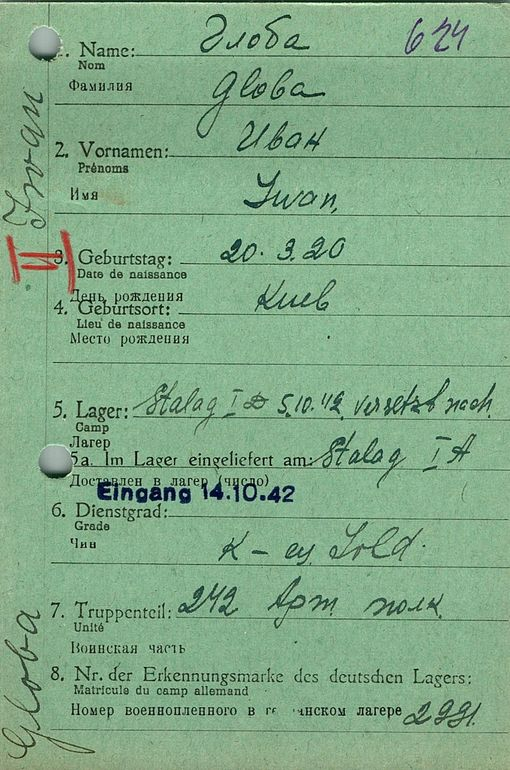 Глоба 624
1. Name:
Nom
Фамилия
Globa
Иван
2. Vornamen:
Prénoms
Имя
Iwan,
3. Geburtstag: 20. 3. 20
Date de naissance
День рождения
4. Geburtsort: Киев
Lieu de naissance
Место рождения
5. Lager: Stalag I D 5.10.42 versetzt nach
Camp
Лагер
5a. Im Lager eingeliefert am: Stalag I A
Доставлен в лагер (число)
Eingang 14.10.42
6. Dienstgrad:
Grade
Чин
К-ец Sold.
7. Truppenteil: 242 Арт. полк
Unité
Воинская часть
8. Nr. der Erkennungsmarke des deutschen Lagers:
Matricule du camp allemand
Номер военнопленного в г нском лагере 2991.
Globa Iwan
II